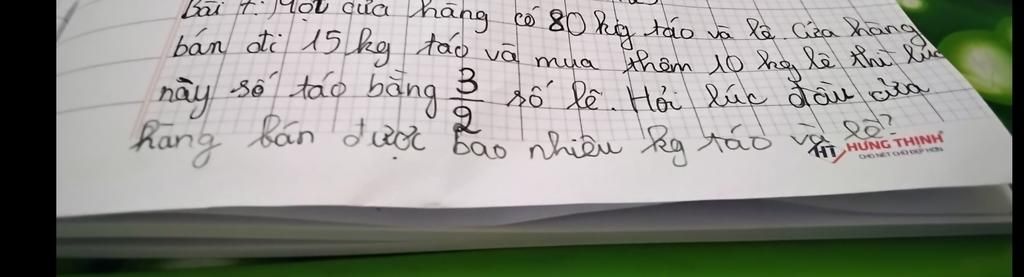 Bài 7: Một cửa hàng có 80 kg táo và lê cửa hàng
bán đi 15 kg táo và mua thêm 10 kg lê thì lúc
này số táo bằng 3/2 số lê. Hỏi lúc đầu cửa
hàng bán được bao nhiêu kg táo và lê?
HT HƯNG THỊNH
CHO NÉT CHỮ ĐẸP HƠN